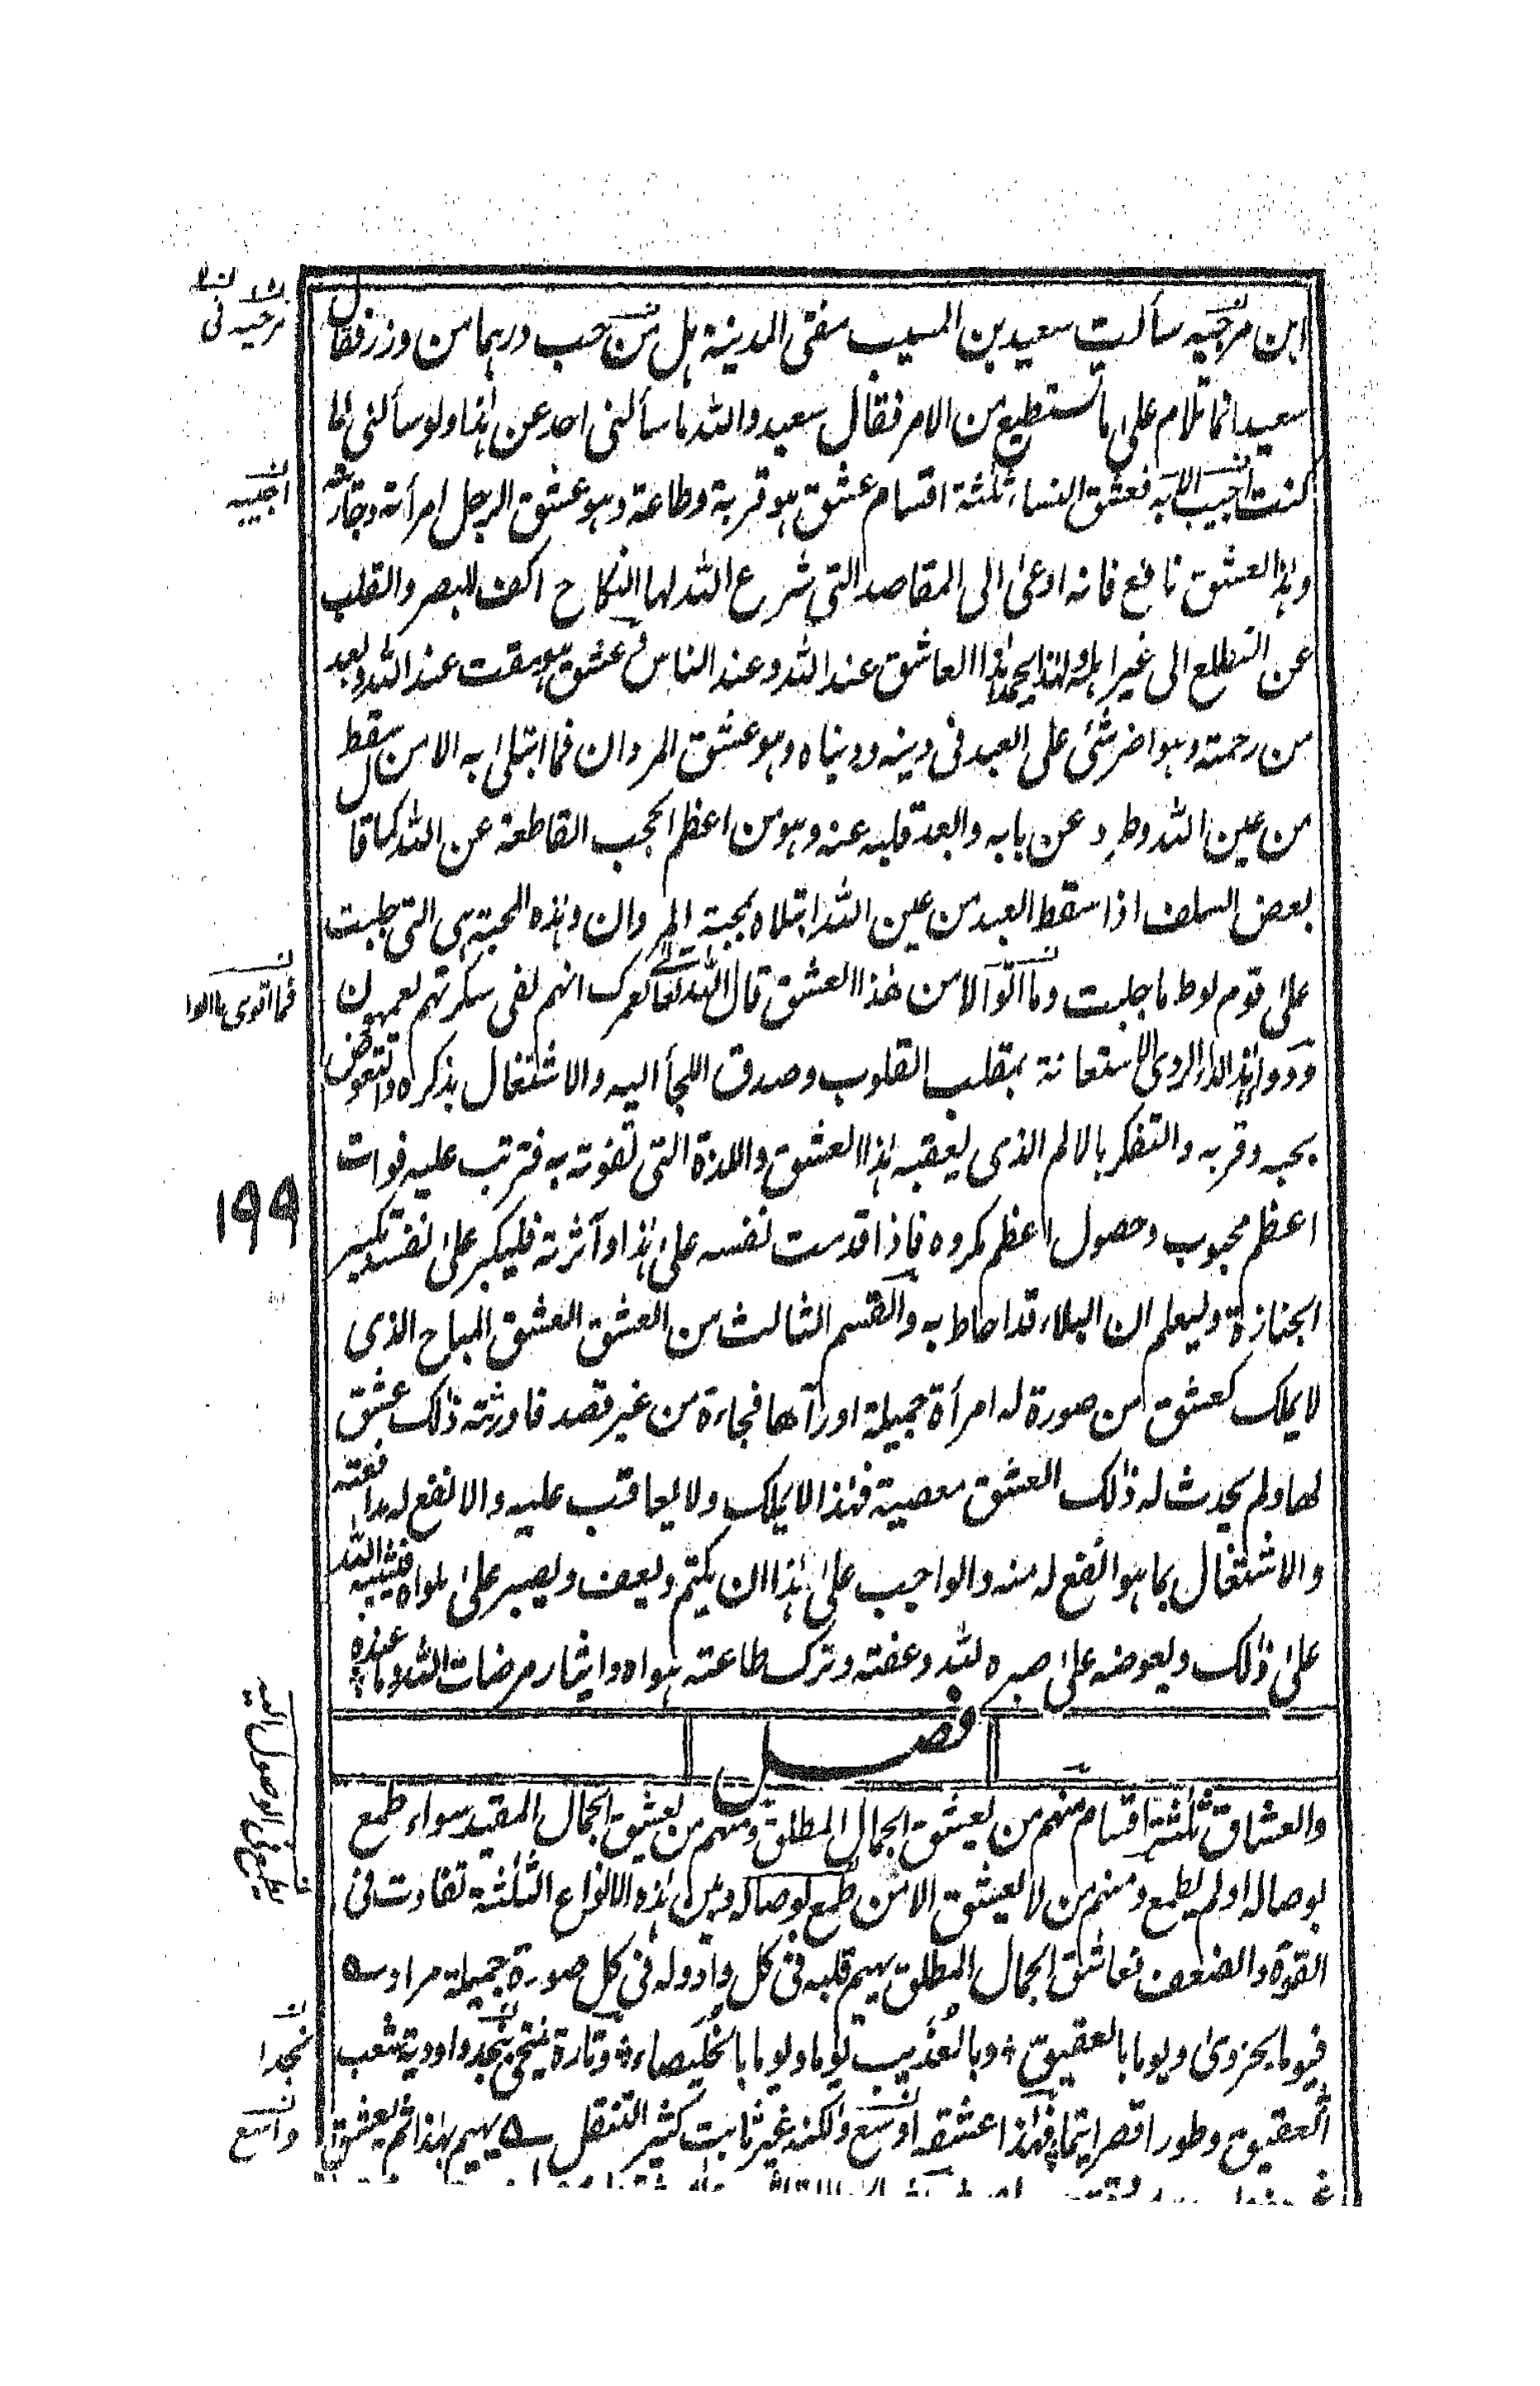 ابن مرجيه سألت سعيد بن المسيب مفتى المدينة هل من حب درهما من وزر فقال
سعيد انما تلام على ما تستطيع من الامر فقال سعيد والله ما سألنى احد عن هذا ولو سألنى لما
كنت اجيب الا به فعشق النساء ثلثة اقسام عشق هو قربة وطاعة وهو عشق الرجل امرأته وجاريته
وهذا العشق نافع فانه ادعى الى المقاصد التى شرع الله لها النكاح اكف للبصر والقلب
عن التطلع الى غير اهله ولهذا يحمد هذا العاشق عند الله وعند الناس وعشق هو مقت عند الله وبعد
من رحمته وهو اضر شئ على العبد فى دينه ودنياه وهو عشق المردان فما ابتلى به الا من سقط
من عين الله وطرد عن بابه وابعد قلبه عنه وهو من اعظم الحجب القاطعة عن الله كما قال
بعض السلف اذا سقط العبد من عين الله ابتلاه بمحبة المردان وهذه المحبة هى التى جلبت
على قوم لوط ما جلبت وما اتوا الا من هذا العشق قال الله تعالى لعمرك انهم لفى سكرتهم يعمهون
ودواء هذا الداء الردى الاستعانة بمقلب القلوب وصدق اللجأ اليه والاشتغال بذكره والتعوض
بحبه وقربه والتفكر بالالم الذى يعقبه هذا العشق واللذة التى تفوته به فترتب عليه فوات
اعظم محبوب وحصول اعظم مكروه فاذا قدمت نفسه على هذا وآثرته فليكبر على نفسه تكبير
الجنازة وليعلم ان البلاء قد احاط به والقسم الثالث من العشق العشق المباح الذى
لا يملك كعشق من صورة له امرأة جميلة او رآها فجاءة من غير قصد فاورثته ذلك عشق
لها ولم يحدث له ذلك العشق معصية فهذا لا يملك ولا يعاقب عليه والانفع له مدافعته
والاشتغال بما هو انفع له منه والواجب على هذا ان يكتم ويعف ويصبر على بلواه فيثيبه الله
على ذلك ويعوضه على صبره لله وعفته وترك طاعته هواه وايثار مرضات الله وما عنده
فصل
والعشاق ثلثة اقسام منهم من يعشق الجمال المطلق ومنهم من يعشق الجمال المقيد سواء طمع
بوصاله او لم يطمع ومنهم من لا يعشق الا من طمع لوصاله وبين هذه الانواع الثلثة تفاوت فى
القوة والضعف فعاشق الجمال المطلق يهيم قلبه فى كل واد وله فى كل صورة جميلة مراد
فيوما بحزوى ويوما بالعقيق وبالعذيب يوما ويوما بالخليصاء وتارة ينتحى بنجد واودية شعب
العقيق وطورا قصر تيما فهذا عشقه اوسع ولكنه غير ثابت كثير التنقل يهيم بهذا ثم يعشق
مرجيه نى
اجيبه
فما اتوى ما الوا
١٩٩
نجدا
واسع